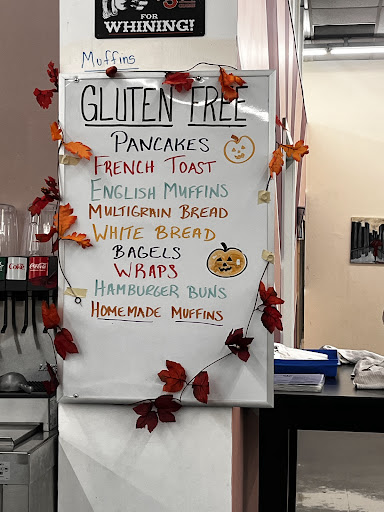 FOR
WHINING!
Muffins
GLUTEN FREE
PANCAKES
FRENCH TOAST
ENGLISH MUFFINS
MULTIGRAIN BREAD
WHITE BREAD
BAGELS
WRAPS
HAMBURGER BUNS
HOMEMADE MUFFINS
Coke
Coca-Cola